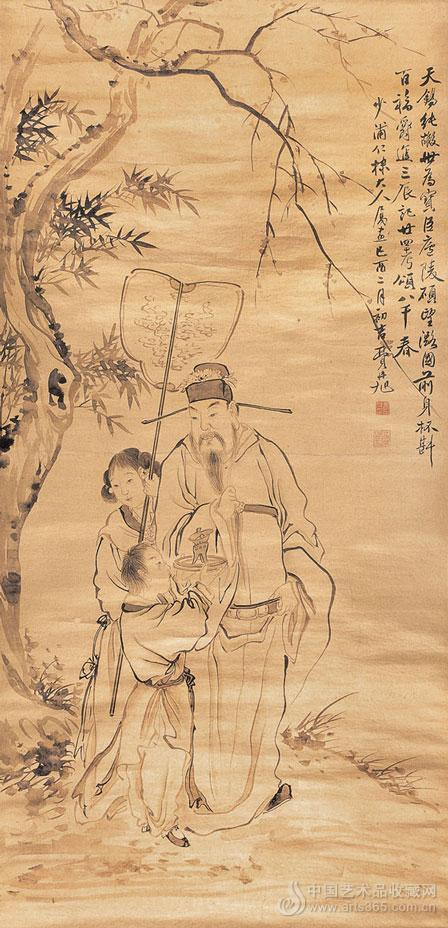 天錫純嘏世為寶臣廬陵碩望潞國前身杯斝
百福爵進三辰記廿四考頌八千春
少浦仁棣大人属畫己酉二月初吉費丹旭
中国艺术品收藏网
www.arts365.com.cn